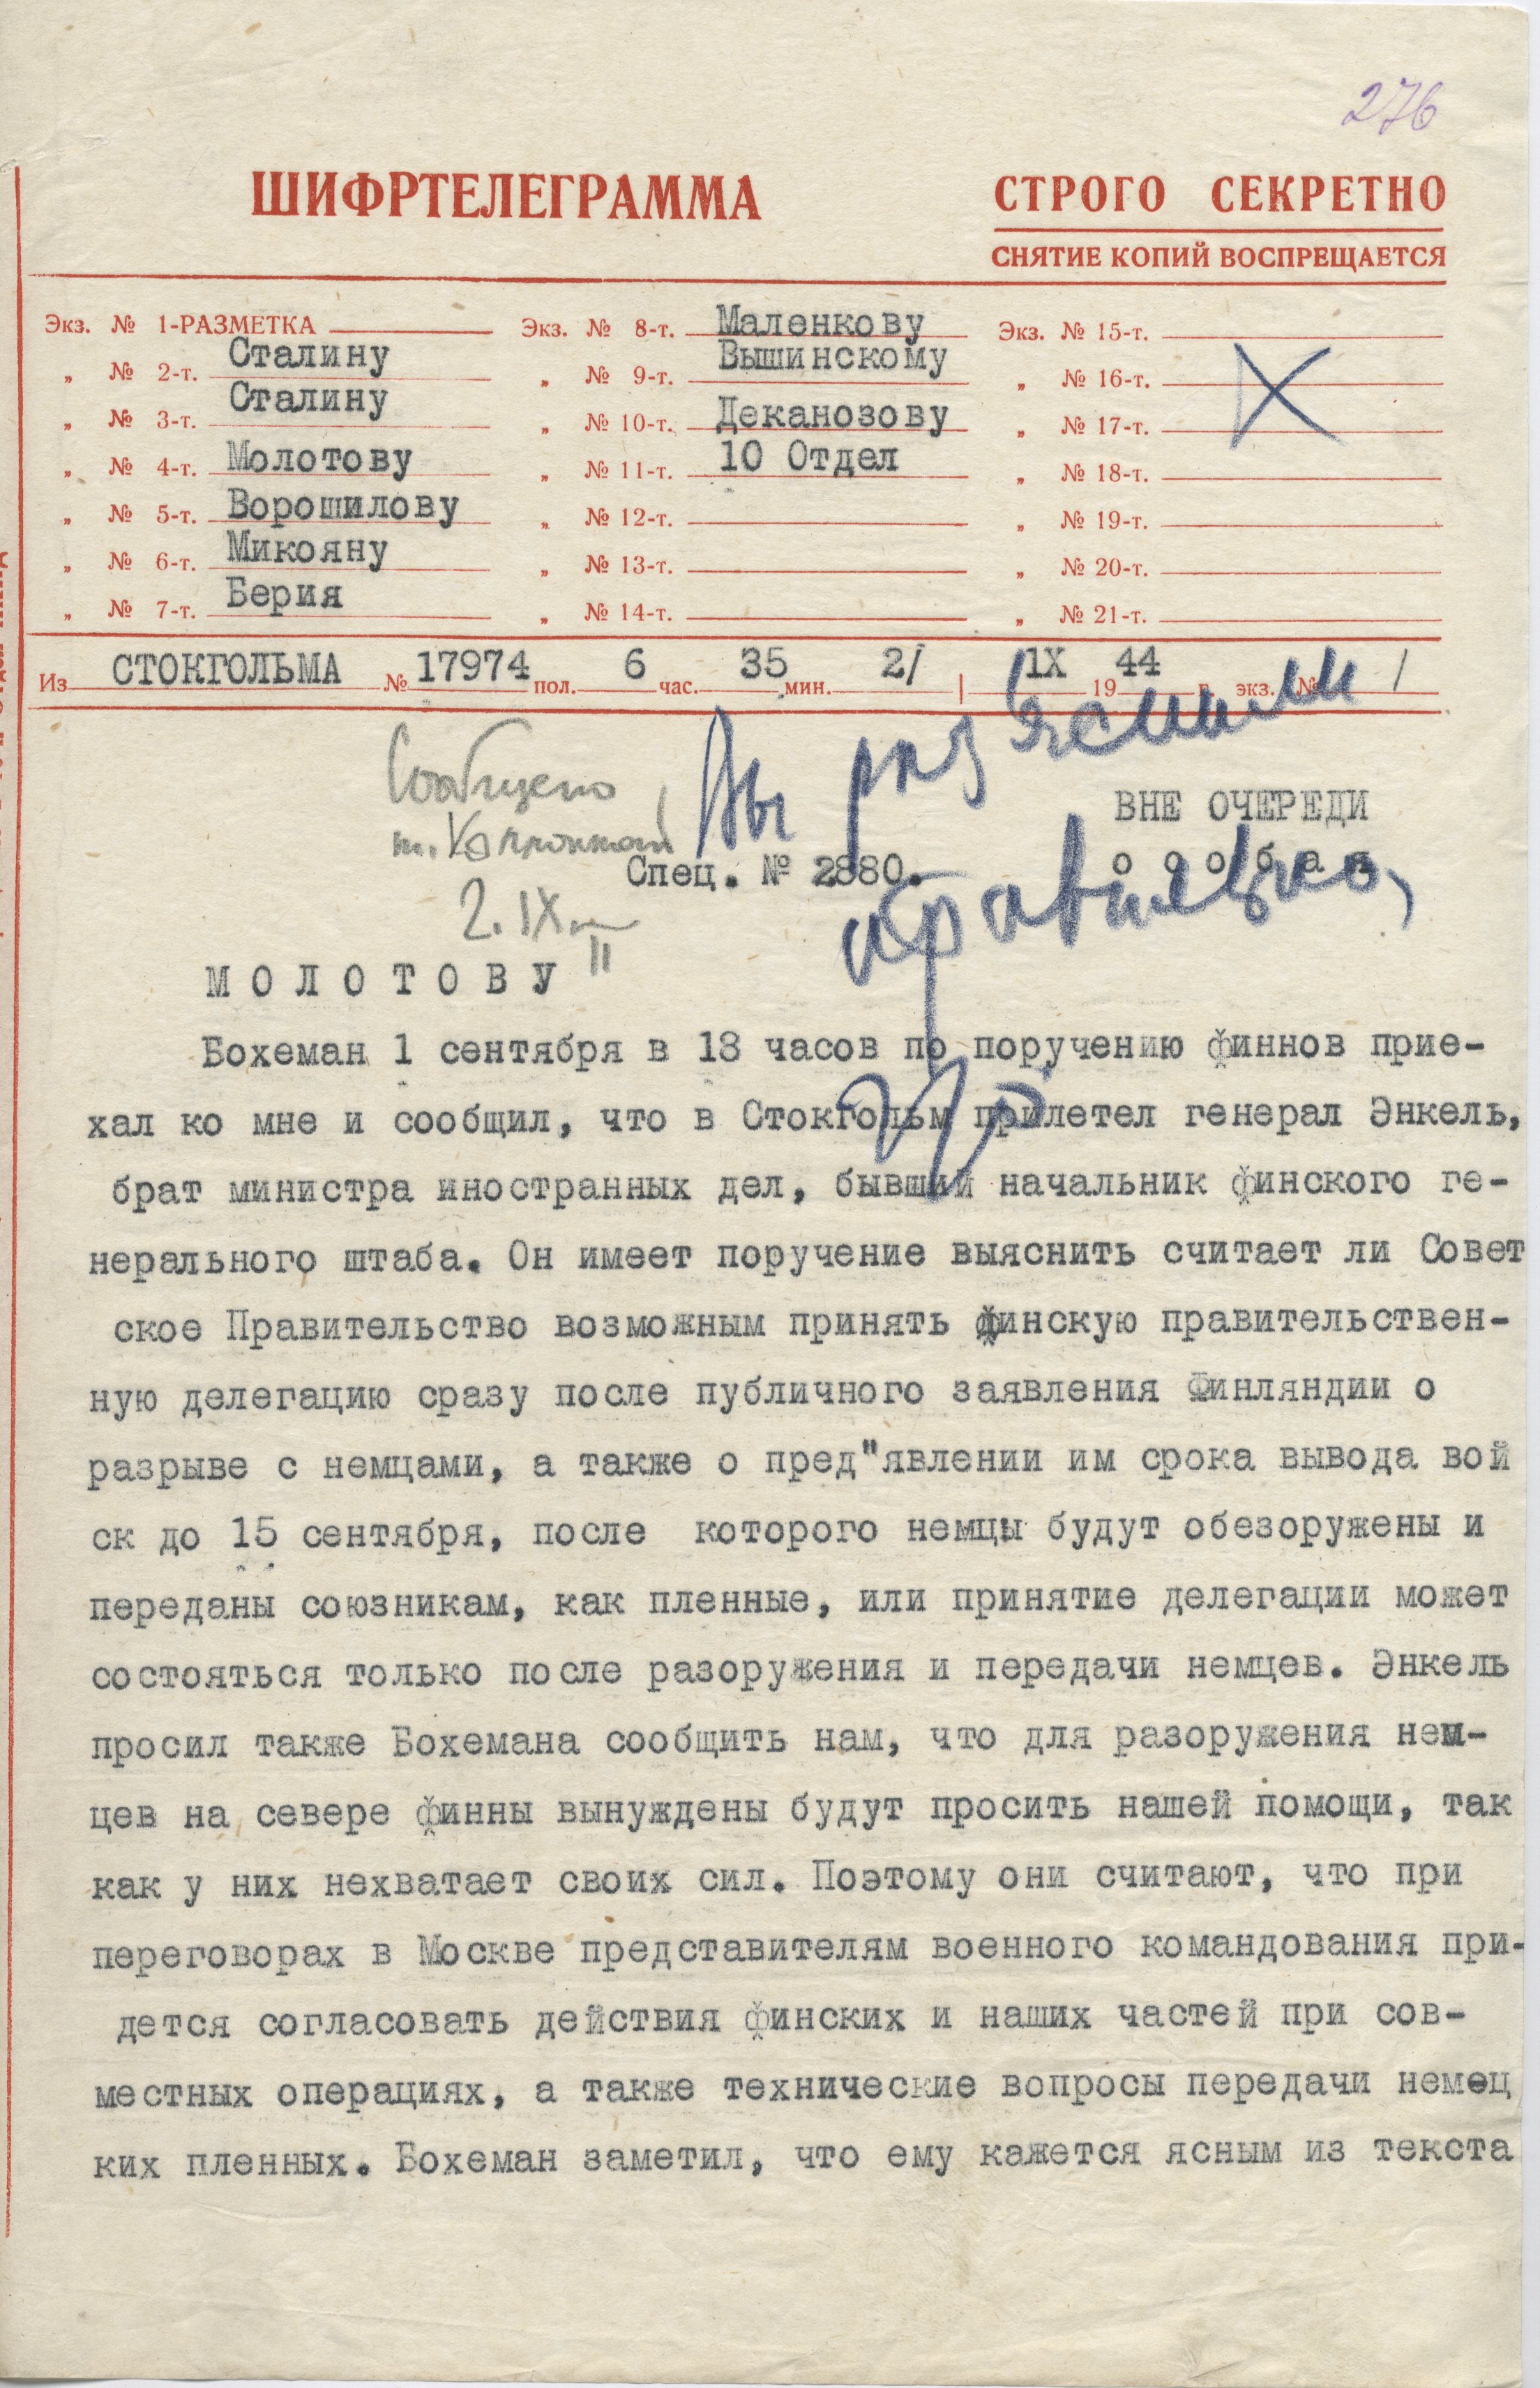 276
ШИФРТЕЛЕГРАММА
СТРОГО СЕКРЕТНО
СНЯТИЕ КОПИЙ ВОСПРЕЩАЕТСЯ
Экз. № 1-РАЗМЕТКА
„ № 2-т. Сталину
„ № 3-т. Сталину
„ № 4-т. Молотову
„ № 5-т. Ворошилову
„ № 6-т. Микояну
„ № 7-т. Берия
Экз. № 8-т. Маленкову
„ № 9-т. Вышинскому
„ № 10-т. Деканозову
„ № 11-т. 10 Отдел
„ № 12-т.
„ № 13-т.
„ № 14-т.
Экз. № 15-т.
„ № 16-т.
„ № 17-т.
„ № 18-т.
„ № 19-т.
„ № 20-т.
„ № 21-т.
Из СТОКГОЛЬМА № 17974 пол. 6 час. 35 мин. 2/ IX 1944 г. экз. № 1
Вы разъяснили
правильно,
Сообщено
2.IX
ВНЕ ОЧЕРЕДИ
Спец. № 2880.
МОЛОТОВУ
Бохеман 1 сентября в 18 часов по поручению финнов прие-
хал ко мне и сообщил, что в Стокгольм прилетел генерал Энкель,
брат министра иностранных дел, бывший начальник финского ге-
нерального штаба. Он имеет поручение выяснить считает ли Совет
ское Правительство возможным принять финскую правительствен-
ную делегацию сразу после публичного заявления Финляндии о
разрыве с немцами, а также о пред"явлении им срока вывода вой
ск до 15 сентября, после которого немцы будут обезоружены и
переданы союзникам, как пленные, или принятие делегации может
состояться только после разоружения и передачи немцев. Энкель
просил также Бохемана сообщить нам, что для разоружения нем-
цев на севере финны вынуждены будут просить нашей помощи, так
как у них нехватает своих сил. Поэтому они считают, что при
переговорах в Москве представителям военного командования при-
дется согласовать действия финских и наших частей при сов-
местных операциях, а также технические вопросы передачи немец
ких пленных. Бохеман заметил, что ему кажется ясным из текста